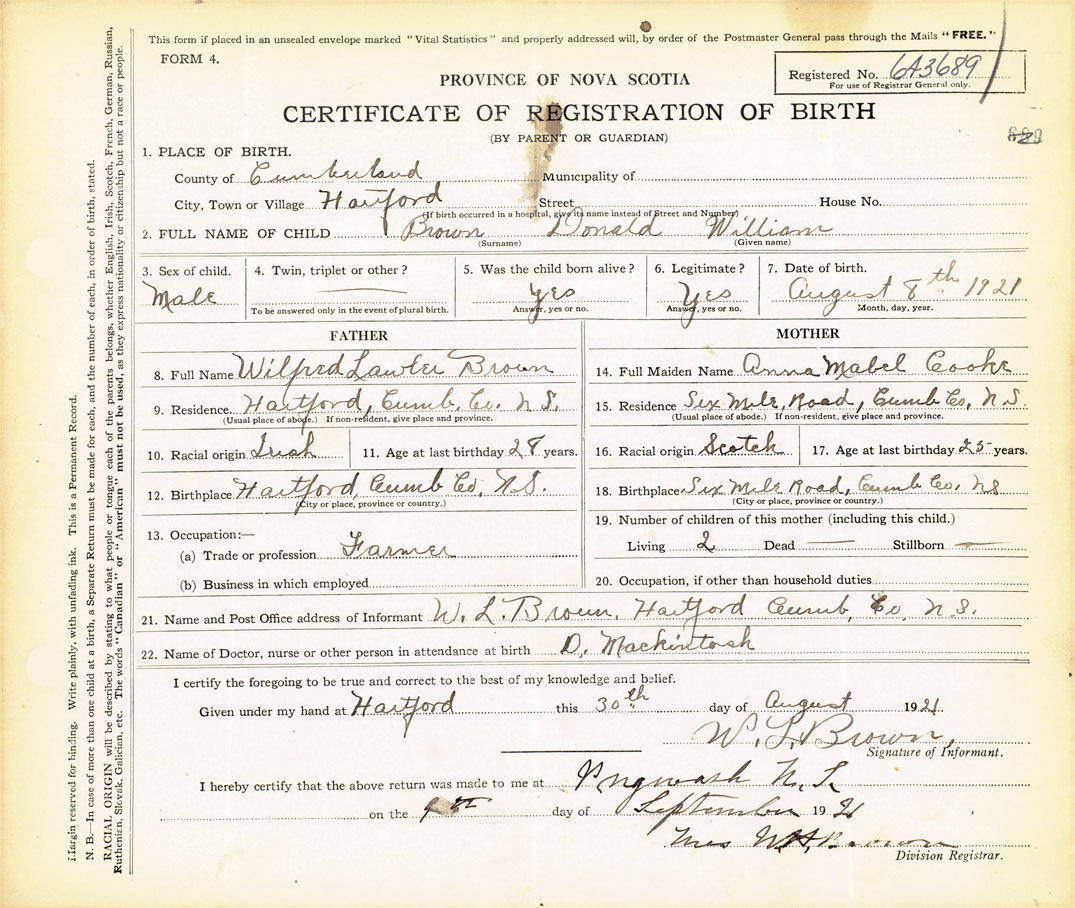 This form if placed in an unsealed envelope marked "Vital Statistics" and properly addressed will, by order of the Postmaster General pass through the Mails "FREE."
FORM 4.
Registered No. 643689
For use of Registrar General only.
PROVINCE OF NOVA SCOTIA
CERTIFICATE OF REGISTRATION OF BIRTH
(BY PARENT OR GUARDIAN)
1. PLACE OF BIRTH.
County of Cumberland Municipality of
City, Town or Village Hartford Street House No.
(If birth occurred in a hospital, give its name instead of Street and Number)
2. FULL NAME OF CHILD Brown Donald William
(Surname) (Given name)
3. Sex of child. 4. Twin, triplet or other? 5. Was the child born alive? 6. Legitimate? 7. Date of birth.
Male Yes Yes August 8th 1921
To be answered only in the event of plural birth. Answer, yes or no. Answer, yes or no. Month, day, year.
FATHER
8. Full Name Wilfred Lawler Brown
9. Residence Hartford, Cumb. Co. N S.
(Usual place of abode.) If non-resident, give place and province.
10. Racial origin Irish 11. Age at last birthday 28 years.
12. Birthplace Hartford, Cumb Co. N.S.
(City or place, province or country.)
13. Occupation:—
(a) Trade or profession Farmer
(b) Business in which employed
MOTHER
14. Full Maiden Name Anna Mabel Cooke
15. Residence Six Mile Road, Cumb Co, N S.
(Usual place of abode.) If non-resident, give place and province.
16. Racial origin Scotch 17. Age at last birthday 25 years.
18. Birthplace Six Mile Road, Cumb Co. NS
(City or place, province or country.)
19. Number of children of this mother (including this child.)
Living 2 Dead — Stillborn —
20. Occupation, if other than household duties
21. Name and Post Office address of Informant W. L. Brown, Hartford Cumb, Co, N S.
22. Name of Doctor, nurse or other person in attendance at birth D. Mackintosh
I certify the foregoing to be true and correct to the best of my knowledge and belief.
Given under my hand at Hartford this 30th day of August 1921
W. L. Brown,
Signature of Informant.
I hereby certify that the above return was made to me at Pugwash N. S.
on the th day of September 1921
Mrs Brown
Division Registrar.
Margin reserved for binding. Write plainly, with unfading ink. This is a Permanent Record.
N. B.—In case of more than one child at a birth, a Separate Return must be made for each, and the number of each, in order of birth, stated.
RACIAL ORIGIN will be described by stating to what people or tongue each of the parents belongs, whether English, Irish, Scotch, French, German, Russian,
Ruthenian, Slovak, Galician, etc. The words "Canadian" or "American" must not be used, as they express nationality or citizenship but not a race or people.